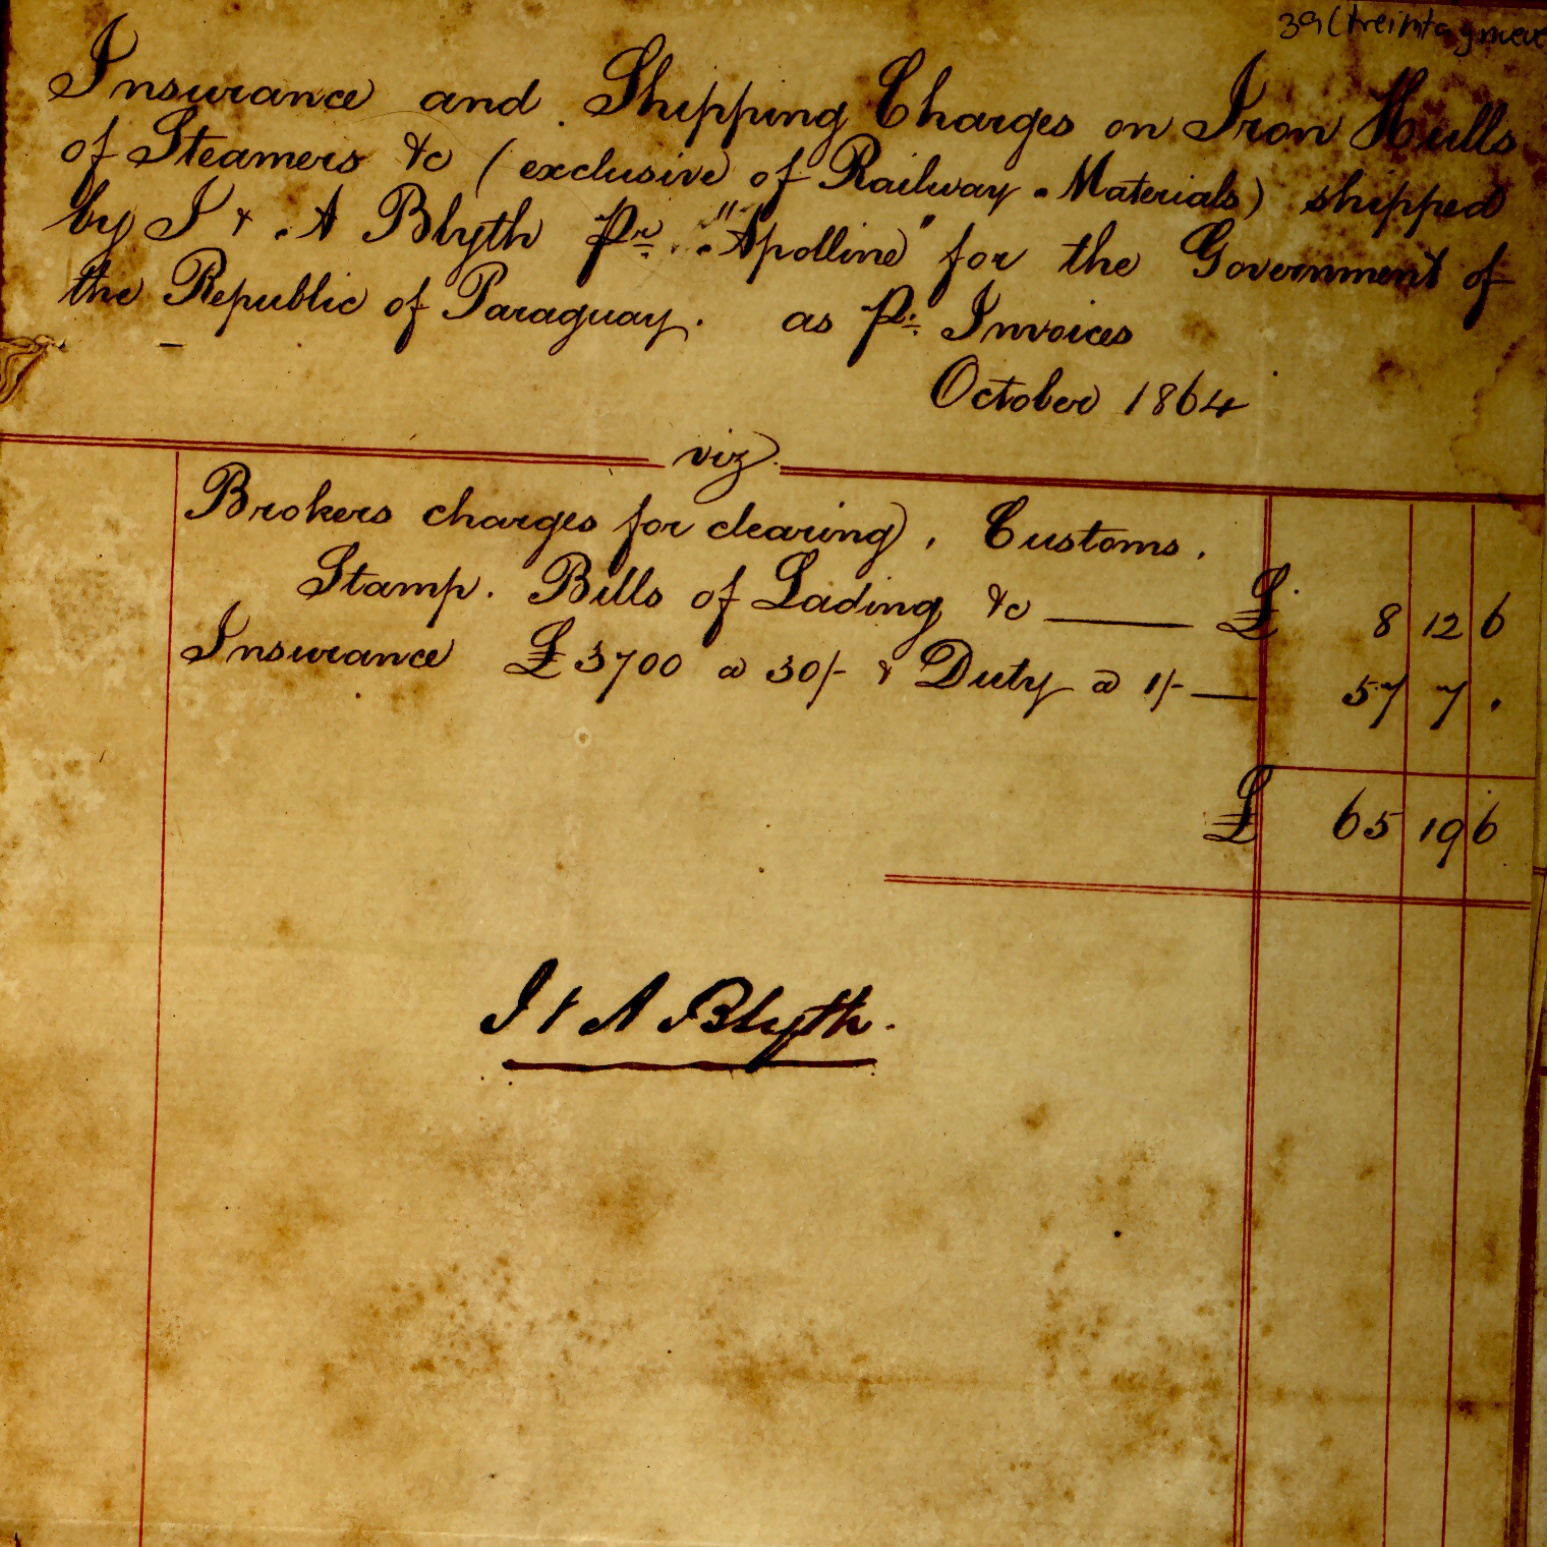 39 (treinta y nueve
Insurance and Shipping Charges on Iron Hulls
of Steamers &c (exclusive of Railway Materials) shipped
by J & A Blyth pr "Apolline" for the Government of
the Republic of Paraguay. as pr Invoices
October 1864
viz.
Brokers charges for clearing, Customs.
Stamp. Bills of Lading &c £ 8 12 6
Insurance £3700 @ 30/- & Duty @ 1/- 57 7 .
£ 65 19 6
J & A Blyth.